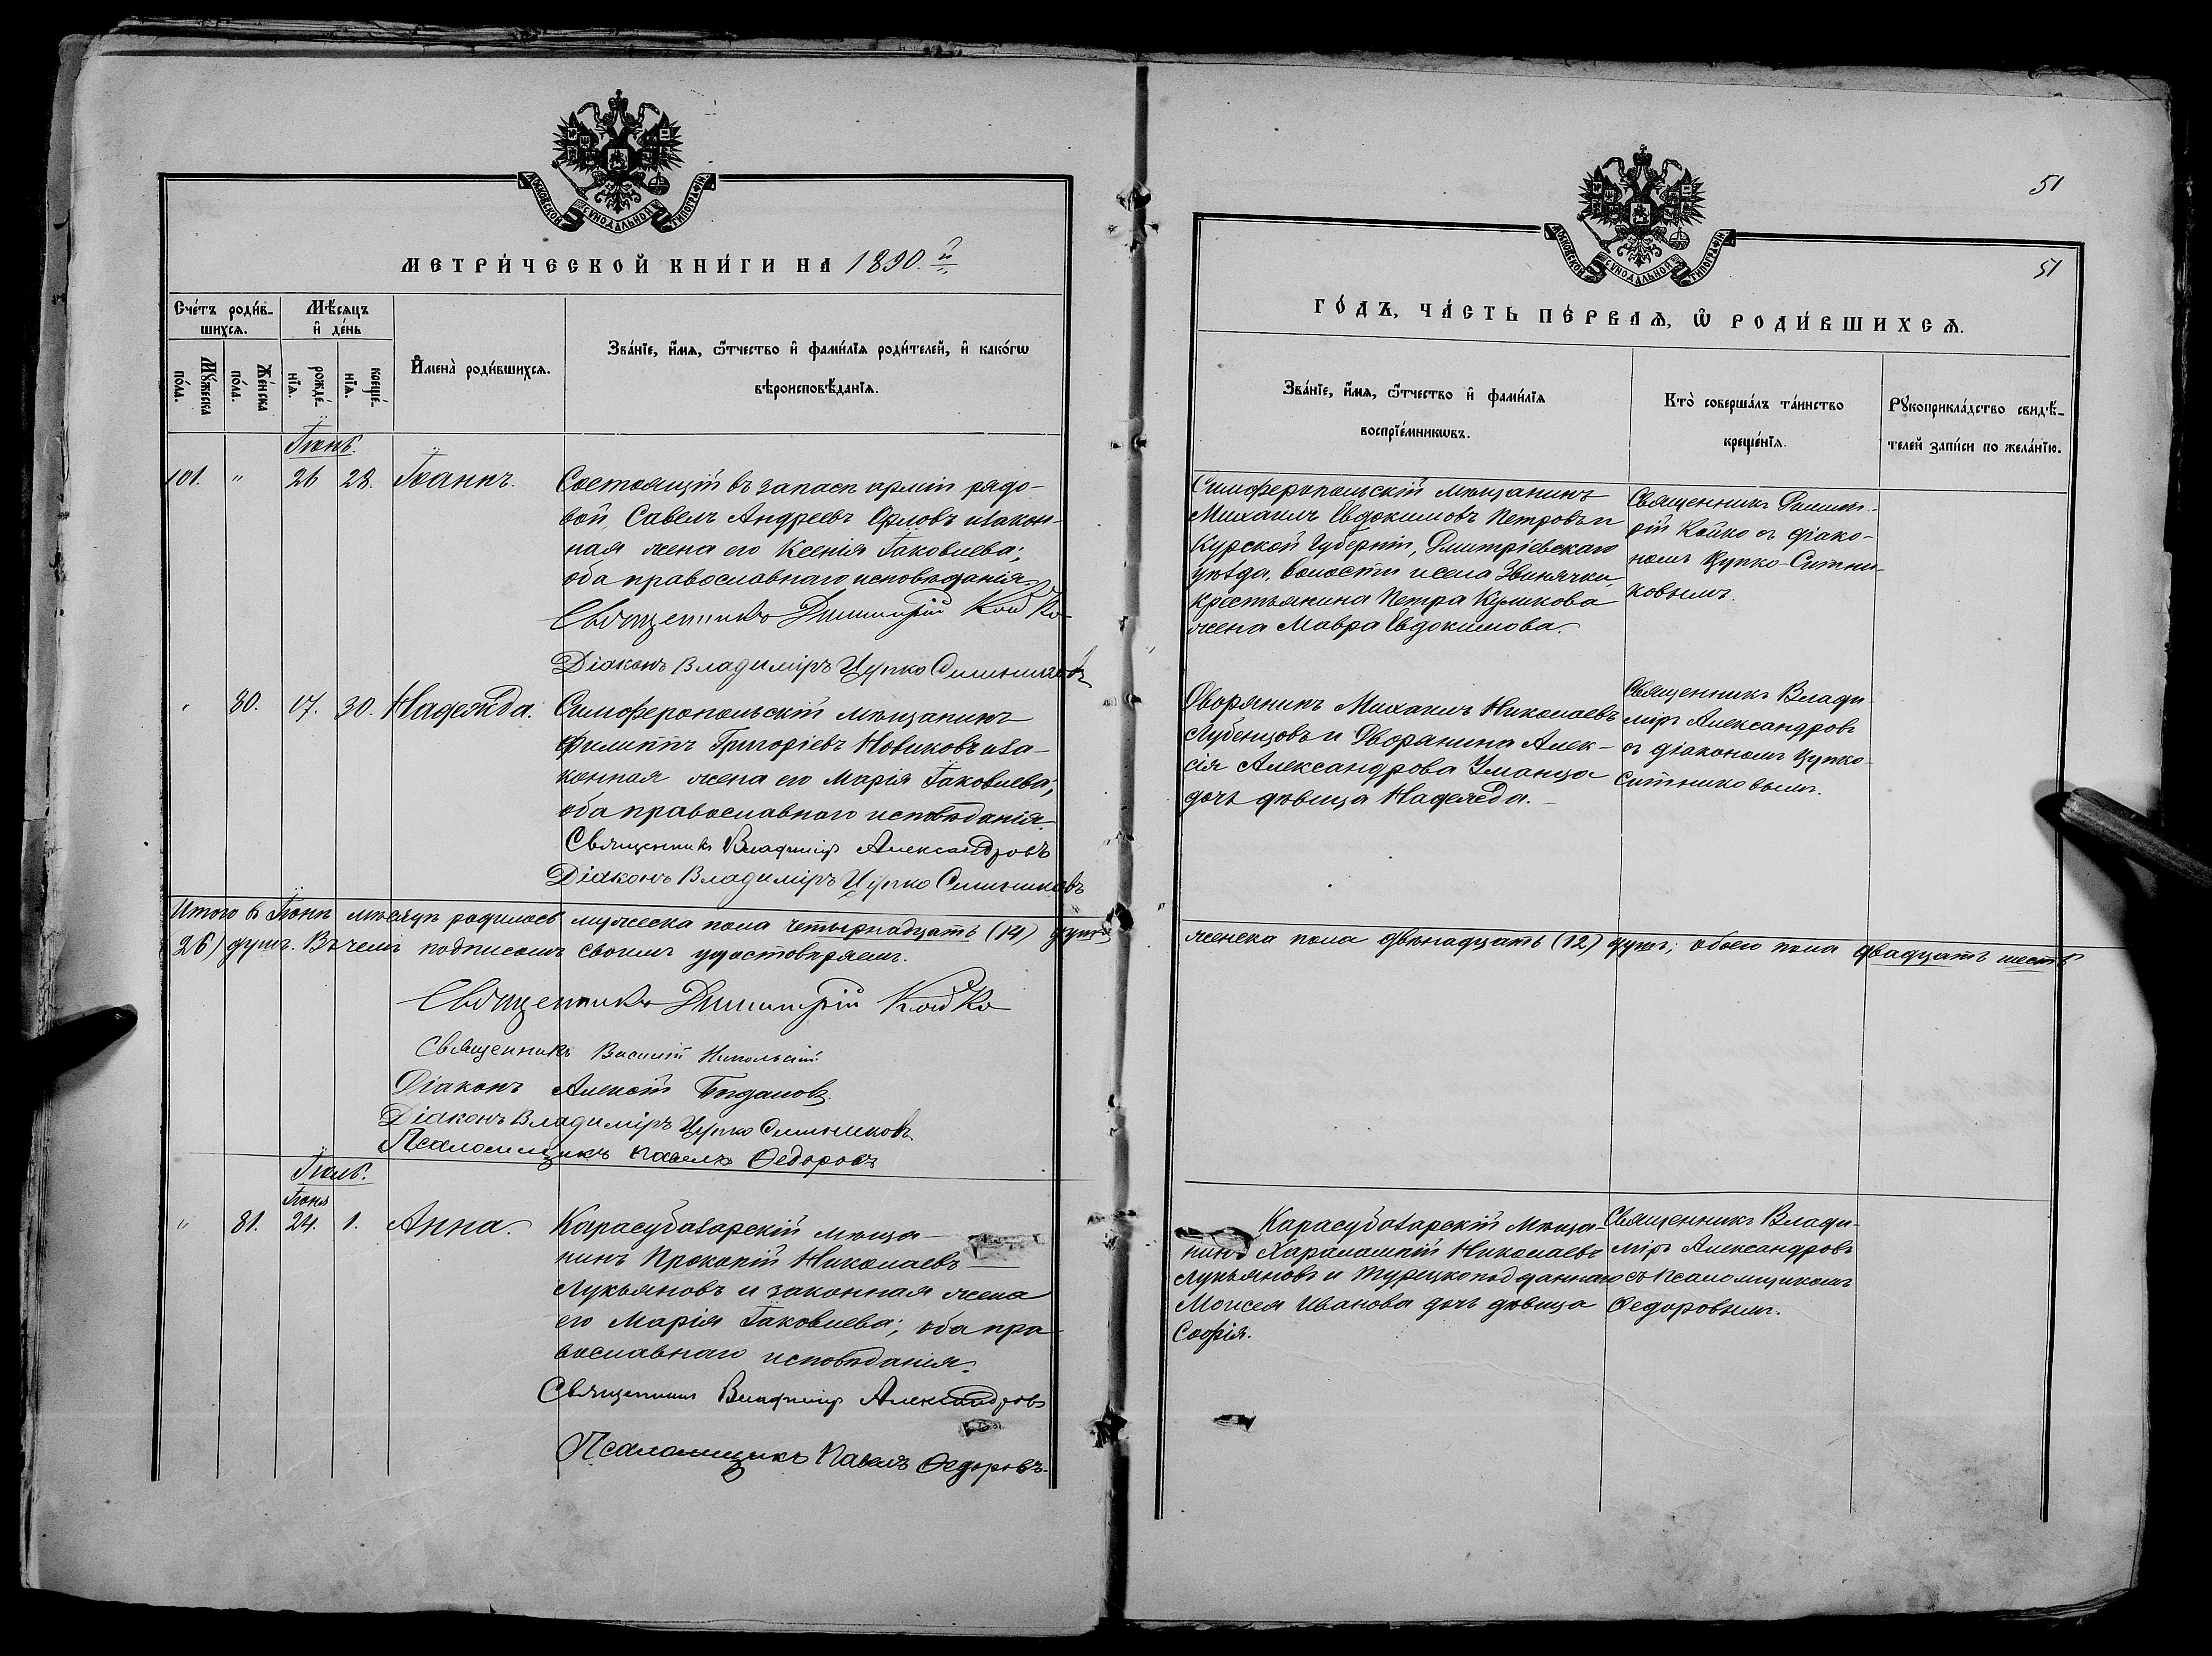 МОСКОВСКОЙ СѴНОДАЛЬНОЙ ТИПОГРАФІИ
МЕТРИ́ЧЕСКОЙ КНИ́ГИ НА 1890.й
Сче́тъ роди́в-
шихсѧ.
Мѣ́сѧцъ
и҆ де́нь
Мꙋ́жеска
по́ла.
Же́нска
по́ла.
рожде́-
нїѧ.
креще́-
нїѧ.
И҆мена̀ роди́вшихсѧ.
Зва́нїе, и҆́мѧ, ѻ҆́тчество и҆ фами́лїѧ роди́телей, и҆ како́гѡ
вѣроисповѣ́данїѧ.
Іюнь.
101. " 26 28. Іоаннъ. Состоящій въ запасѣ арміи рядо-
вой Савелъ Андреевъ Орловъ и закон-
ная жена его Ксенія Іаковлева;
оба православнаго исповѣданія.
Священникъ Димитрій Койко
Діаконъ Владиміръ Цупко Ситниковъ
" 80. 17. 30. Надежда. Симферопольскій мѣщанинъ
Филиппъ Григоріевъ Новиковъ и за-
конная жена его Марія Іаковлева;
оба православнаго исповѣданія.
Священникъ Владиміръ Александровъ
Діаконъ Владиміръ Цупко Ситниковъ
Итого въ Іюнѣ мѣсяцѣ родилось мужеска пола четырнадцать (14) душъ
(26) душъ. Въ чемъ подписомъ своимъ удостовѣряемъ.
Священникъ Димитрій Койко
Священникъ Василій Никольскій
Діаконъ Алексѣй Богдановъ.
Діаконъ Владиміръ Цупко Ситниковъ.
Псаломщикъ Павелъ Ѳедоровъ
Іюль.
Іюня
" 81. 24. 1. Анна. Карасубазарскій мѣща-
нинъ Прокопій Николаевъ
Лукьяновъ и законная жена
его Марія Іаковлева; оба пра-
вославнаго исповѣданія.
Священникъ Владиміръ Александровъ
Псаломщикъ Павелъ Ѳедоровъ.
51
МОСКОВСКОЙ СѴНОДАЛЬНОЙ ТИПОГРАФІИ
51
ГО́ДЪ, ЧА́СТЬ ПЕ́РВАѦ, Ѡ҆ РОДИ́ВШИХСѦ.
Зва́нїе, и҆́мѧ, ѻ҆́тчество и҆ фами́лїѧ
воспрїе́мникѡвъ.
Кто̀ соверша́лъ та́инство
креще́нїѧ.
Рꙋкоприкла́дство свидѣ́-
телей за́писи по жела́нїю.
Симферопольскій мѣщанинъ
Михаилъ Евдокимовъ Петровъ и
Курской Губерніи, Дмитріевскаго
уѣзда, волости и села Звенячки,
крестьянина Петра Куликова
жена Мавра Евдокимова.
Священникъ Димит-
рій Койко съ діако-
номъ Цупко-Ситни-
ковымъ.
Дворянинъ Михаилъ Николаевъ
Лубенцовъ и Дворянина Алек-
сія Александрова Уманца
дочь дѣвица Надежда.
Священникъ Влади-
міръ Александровъ
съ діакономъ Цупко-
Ситниковымъ.
женска пола двѣнадцать (12) душъ; обоего пола двадцать шесть
Карасубазарскій мѣща-
нинъ Харалампій Николаевъ
Лукьяновъ и турецкоподданнаго
Моисея Иванова дочь дѣвица
Софія.
Священникъ Влади-
міръ Александровъ
съ Псаломщикомъ
Ѳедоровымъ.